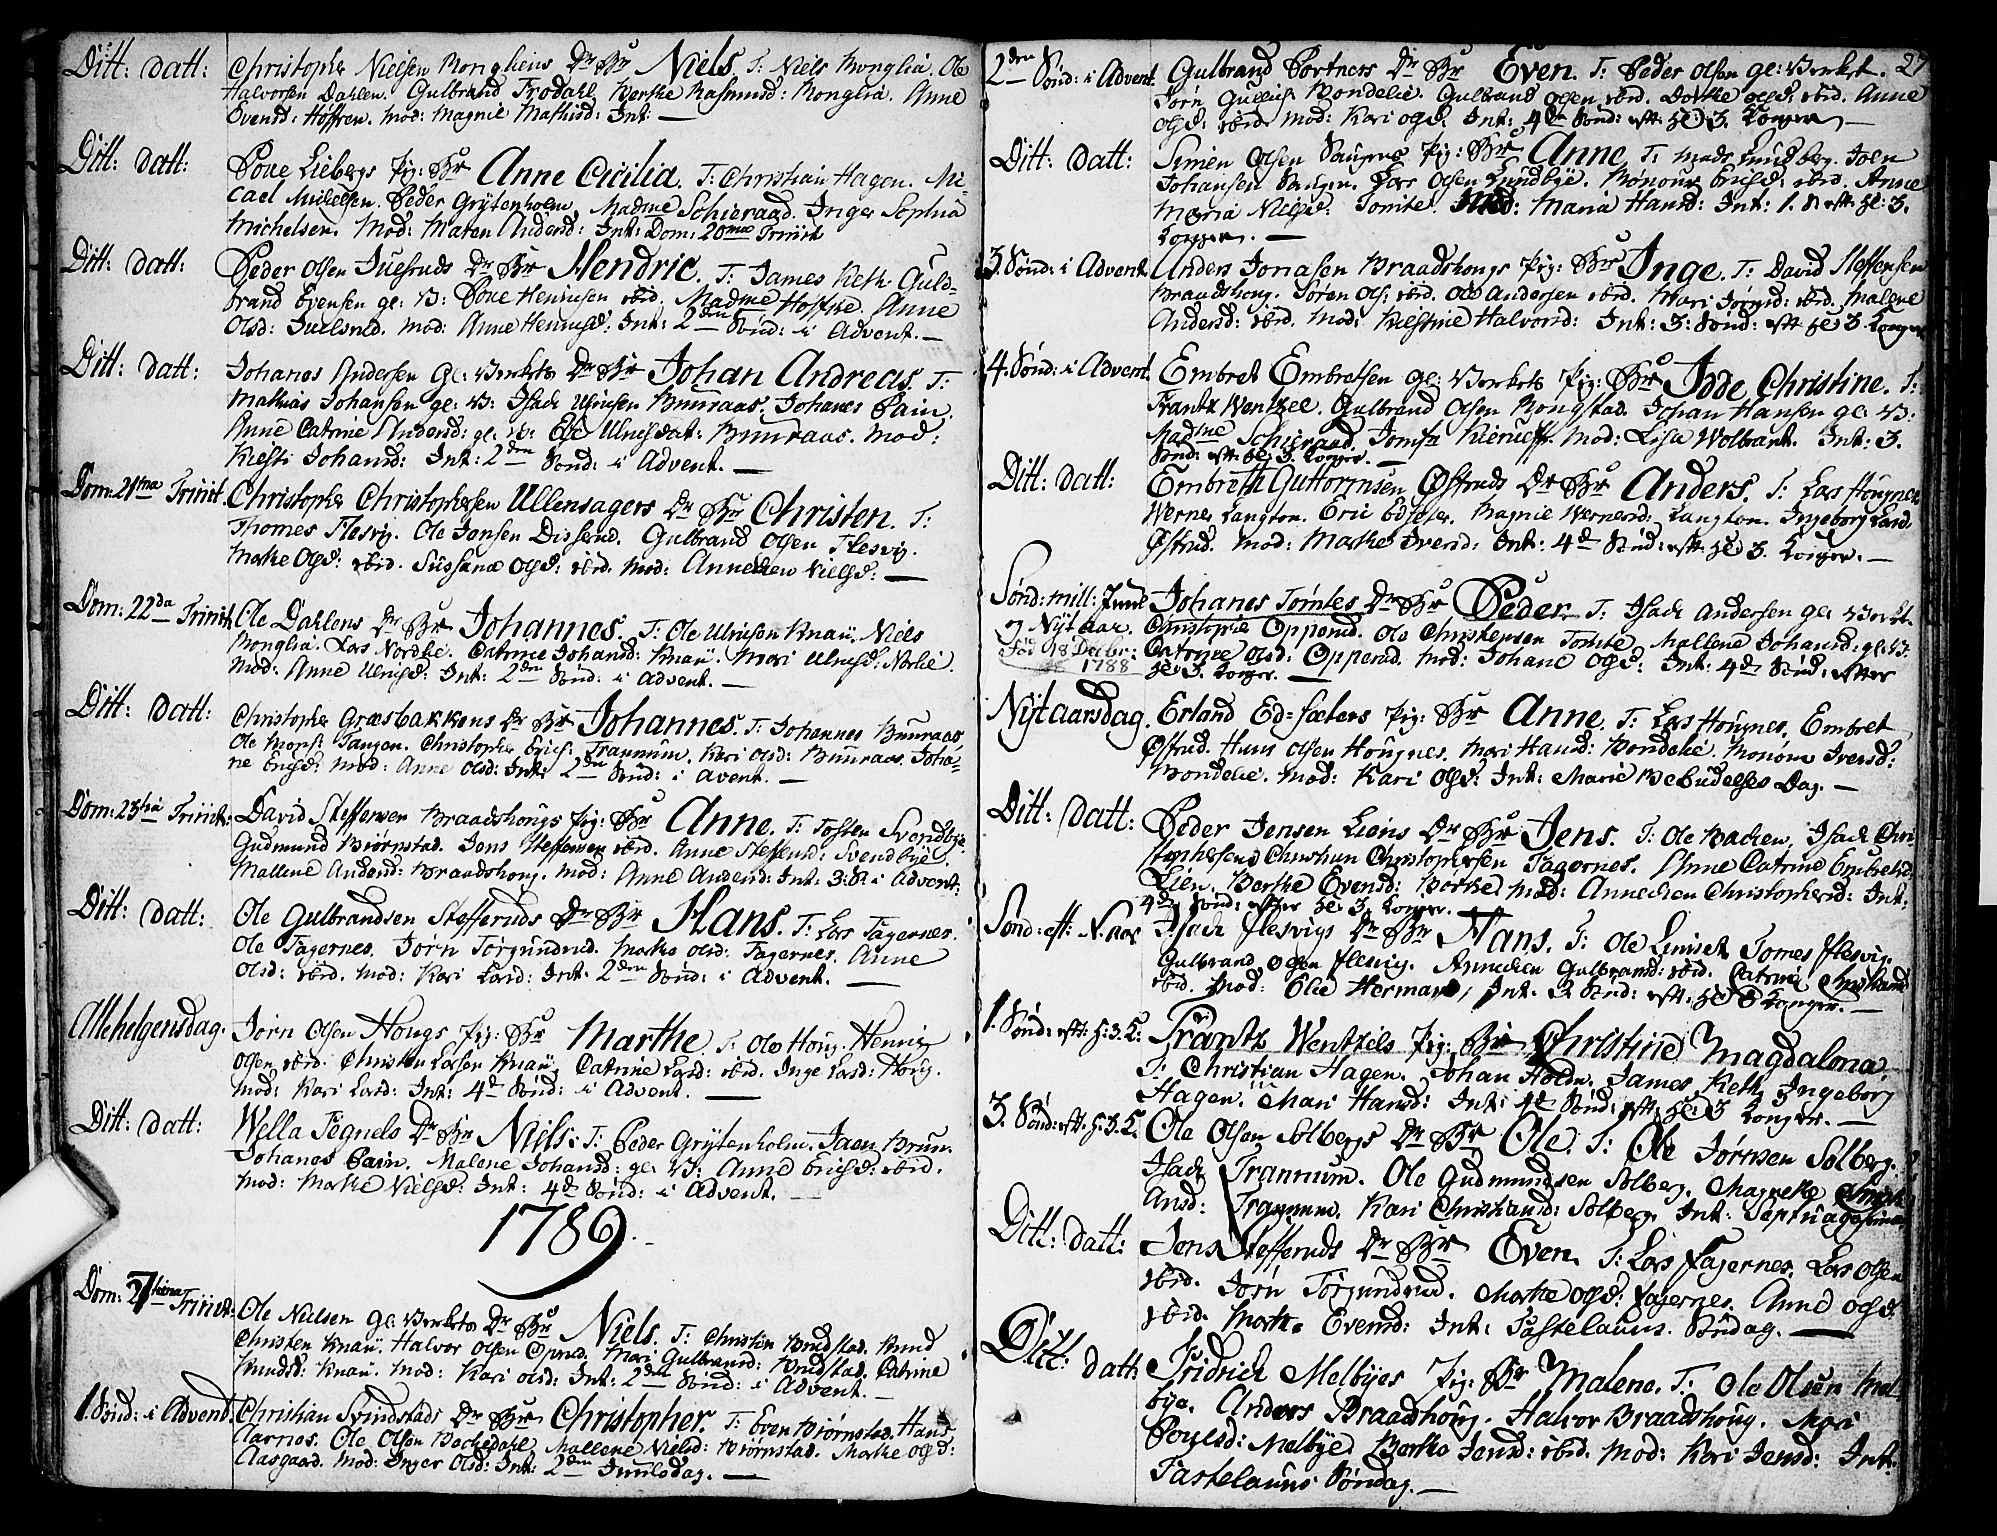 Ditt: datt: Christopher Nielsen Rongliens Dr: Br: Niels. T: Niels Ronglia. Ole
Halvorsen Dahlen. Gulbrand Trodahl. Berthe Rasmusd: Ronglia. Anne
Evensd: Høffren. Mod: Magnie Mathisd: Int: —
Ditt: datt: Pove Liebergs Pig: Br: Anne Cicilia. T: Christian Hagen. Mi-
cael Michelsen. Peder Grytenholm. Madme Schieraad. Inger Sophia
Michelsen. Mod: Maren Andersd: Int: Dom: 20mæ Trinit
Ditt: datt: Peder Olsen Juelsruds Dr: Br: Hendric. T: James Keth. Guld-
brand Evensen gl: V: Povе Henrichsen ibid. Madme Hoffhe. Anne
Olsd: Juelsrud. Mod: Anne Henrichsd: Int: 2den Sönd: i Advent. —
Ditt: datt: Johanes Andersen gl: Verkets Dr: Br: Johan Andreas. T:
Mathias Johansen gl: V: Isach Ulrichsen Buuraas. Johanes Pain.
Anne Catrine Andersd: gl: V: Else Ulrichsdat: Buuraas. Mod:
Kiesti Johansd: Int: 2den Sönd: i Advent. —
Dom: 21ma Trinit. Christopher Christophersen Ullensagers Dr: Br: Christen. T:
Thomes Flesvig. Ole Jonsen Disserud. Gulbrand Olsen Flesvig.
Marthe Olsd: ibid. Sussanæ Olsd: ibid. Mod: Annechen Nielsd: —
Dom: 22da Trinit. Ole Dahlens Dr: Br: Johannes. T: Ole Ulrichsen Knaü. Niels
Ronglia. Lars Nordlie. Catrine Johansd: Knaü. Mari Ulrichsd: Norlie.
Mod: Anne Ulrichsd: Int: 2den Sönd: i Advent. —
Ditt: datt: Christopher Græsbakkens Dr: Br: Johannes. T: Johannes Buuraas
Ole Mons: Tangen. Christopher Erichs: Trannum. Kari Olsd: Buuraas. Joha-
ne Erichsd: Mod: Anne Olsd: Int: 2den Sönd: i Avent. —
Dom: 23tia Trinit: David Steffensen Braadshougs Pig: Br: Anne. T: Torsten Svendbye.
Gudmund Biørnstad. Jens Steffensen ibid. Anne Steffensd: Svendbye.
Mallene Andersd: Braadshoug. Mod: Anne Andersd: Int: 3: S: i Advent:
Ditt: datt: Ole Gulbrandsen Stefferuds Dr: Br: Hans. T: Lars Fagernes.
Ole Fagernes. Jørn Torgundrud. Marthe Olsd: Fagernes. Anne
Olsd: ibid. Mod: Kari Larsd: Int: 2den Sönd: i Advent. —
Allehelgensdag. Jørn Olsen Hougs Pig: Br: Marthe. T: Ole Houg. Hennig
Olsen ibid. Christen Larsen Knaü. Catrine Larsd: ibid. Inge Larsd: Houg.
Mod: Kari Larsd: Int: 4de Sönd: i Advent. —
Ditt: datt: Wella Tegnels Dr: Br: Niels: T: Peder Grytenholm. Jaen Bruun.
Johanes Pain. Malene Johansd: gl: V: Anne Erichsd: ibid.
Mod: Marthe Nielsd: Int: 4de Sönd: i Advent. —
1789.
Dom: Trinit: Ole Nielsen gl: Verkets Dr: Br: Niels. T: Christen Brudstad. Knud
Christen Knaü. Halvor Olsen Oprud. Mari Gulbrandsd: Brudstad. Catrine
Knudsd: Knaü. Mod: Kari Olsd: Int: 2den Sönd: i Advent. —
1. Sönd: i Advend. Christian Svindstads Dr: Br: Christopher. T: Even Biørnstad. Hans
Aarnes. Ole Olsen Bachedahl. Mallene Nielsd: Biørnstad. Marthe Olsd:
Aasgaard. Mod: Inger Olsd: Int: 2den Juulsdag. —
27
2den Sönd: i Advent. Gulbrand Portners Dr: Br: Even. T: Peder Olsen gl: Verket.
Jørn Gullichs: Bondelie. Gulbrand Olsen ibid. Dorthe Olsd: ibid. Anne
Olsd: ibid. Mod: Kari Olsd: Int: 4de Sönd: eft: Hel: 3. Konger. —
Ditt: datt: Simen Olsen Saugens Pig: Br: Anne. T: Mads Lundberg. Joen
Johansen Saugen. Lars Olsen Lundbye. Rønoug Erichsd: ibid. Anne
Maria Nielsd: Tomte. Mod: Maria Hansd: Int: 1. S: eft: Hel: 3.
Konger. —
3. Sönd: i Advent. Anders Jonasen Braadshougs Pig: Br: Inge. T: David Steffensen
Braadshoug. Søren Ols: ibid. Ole Andersen ibid. Mari Jørnsd: ibid. Malene
Andersd: ibid. Mod: Kiestine Halvorsd: Int: 3: Sönd: eft: Hel: 3. Konger
4. Sönd: i Advent. Embret Embretsen gl: Verkets Pig: Br: Idde Christine. T:
Frantz Wentzel. Gulbrand Olsen Rongstad. Johan Hansen gl: V:
Madme Schieraad. Jomfr Kierulf. Mod: Lisa Wolbant. Int: 3.
Sönd: eft: Hel: 3. Konger. —
Ditt: datt: Embreth Guttormsen Østruds Dr: Br: Anders. T: Lars Hougnes
Werner Langton. Eric Edsæter. Magnie Wernersd: Langton. Ingeborg Larsd:
Østrud. Mod: Marthe Iversd: Int: 4de Sönd: eft: Hel: 3. Konger. —
Sönd: mill: Juul og Nyt aar. Johanes Tomtes Dr: Br: Peder. T: Isach Andersen gl: Verket
Fød 18 Decbr: 1788 Christopher Opperud. Ole Christensen Tomte. Mallene Johansd: gl: V:
Catrine Olsd: Opperud. Mod: Johane Olsd: Int: 4de Sönd: efter
Hel: 3. Konger. —
Nytaarsdag. Erland Ed-sæters Pig: Br: Anne. T: Lars Hougnes. Embret
Østrud. Hans Olsen Hougnes. Mari Hansd: Bondelie. Mariøn Iversd:
Bondelie. Mod: Kari Olsd: Int: Mariæ Bebudelses Dag. —
Ditt: datt: Peder Jensen Liens Dr: Br: Jens. T: Ole Bachen. Isach Chri-
stophersen. Christian Christophersen Fagernes. Anne Catrine Embretsd:
Lien. Berthe Evensd: Mod: Annechen Christophersd: Int:
4de Sönd: efter Hel: 3. Konger. —
Sönd: eft: N. aar Isach Flesvigs Dr: Br: Hans. T: Ole Linset. Tomes Flesvig.
Gulbrand Olsen Flesvig. Annechen Gulbrandsd: ibid. Catrine Christiansd
ibid. Mod: Elie Hermansd: Int: 3 Sönd: eft: Hel: 3 Konger. —
1. Sönd: eft: H: 3. K: Frantz Wentzels Pig: Br: Christine Magdalena.
T: Christian Hagen. Johan Holdn. James Keth. Ingeborg
Hagen. Mari Hansd: Int: 4de Sönd: eft: Hel: 3 Konger. —
3. Sönd: eft: H: 3. K: Ole Olsen Solbergs Dr: Br: Ole. T: Ole Jørnsen Solberg.
Isach Trannum. Ole Gudmundsen Solberg. Magrethe
Ansd: Trannum. Kari Christiansd: Solberg. Int: Septuagesima
Ditt: datt: Jens Stefferuds Dr: Br: Even. T: Lars Fagernes. Lars Olsen
ibid. Jørn Torgundrud. Marthe Olsd: Fagernes. Anne Olsd:
ibid. Marthe Evensd: Int: Fastelauns Söndag. —
Ditt: datt: Fridrich Melbyes Pig: Br: Malene. T: Ole Olsen Mel
bye. Anders Braadshoug. Halvor Braadshoug. Mari
Poulsd: Melbye. Berthe Jensd: ibid. Mod: Kari Jensd: Int:
Fastelauns Söndag. —